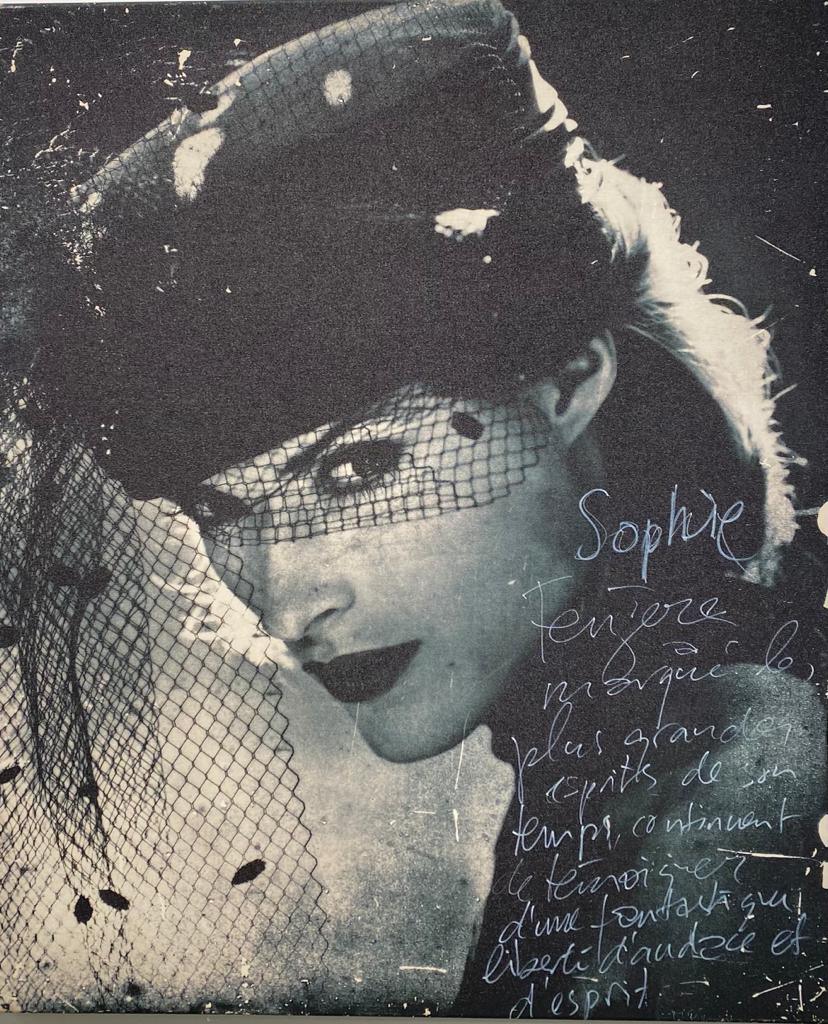 Sophie
marqué les
plus grands
esprits de son
temps, continuent
de témoigner
d'une fantastique
liberté d'audace et
d'esprit